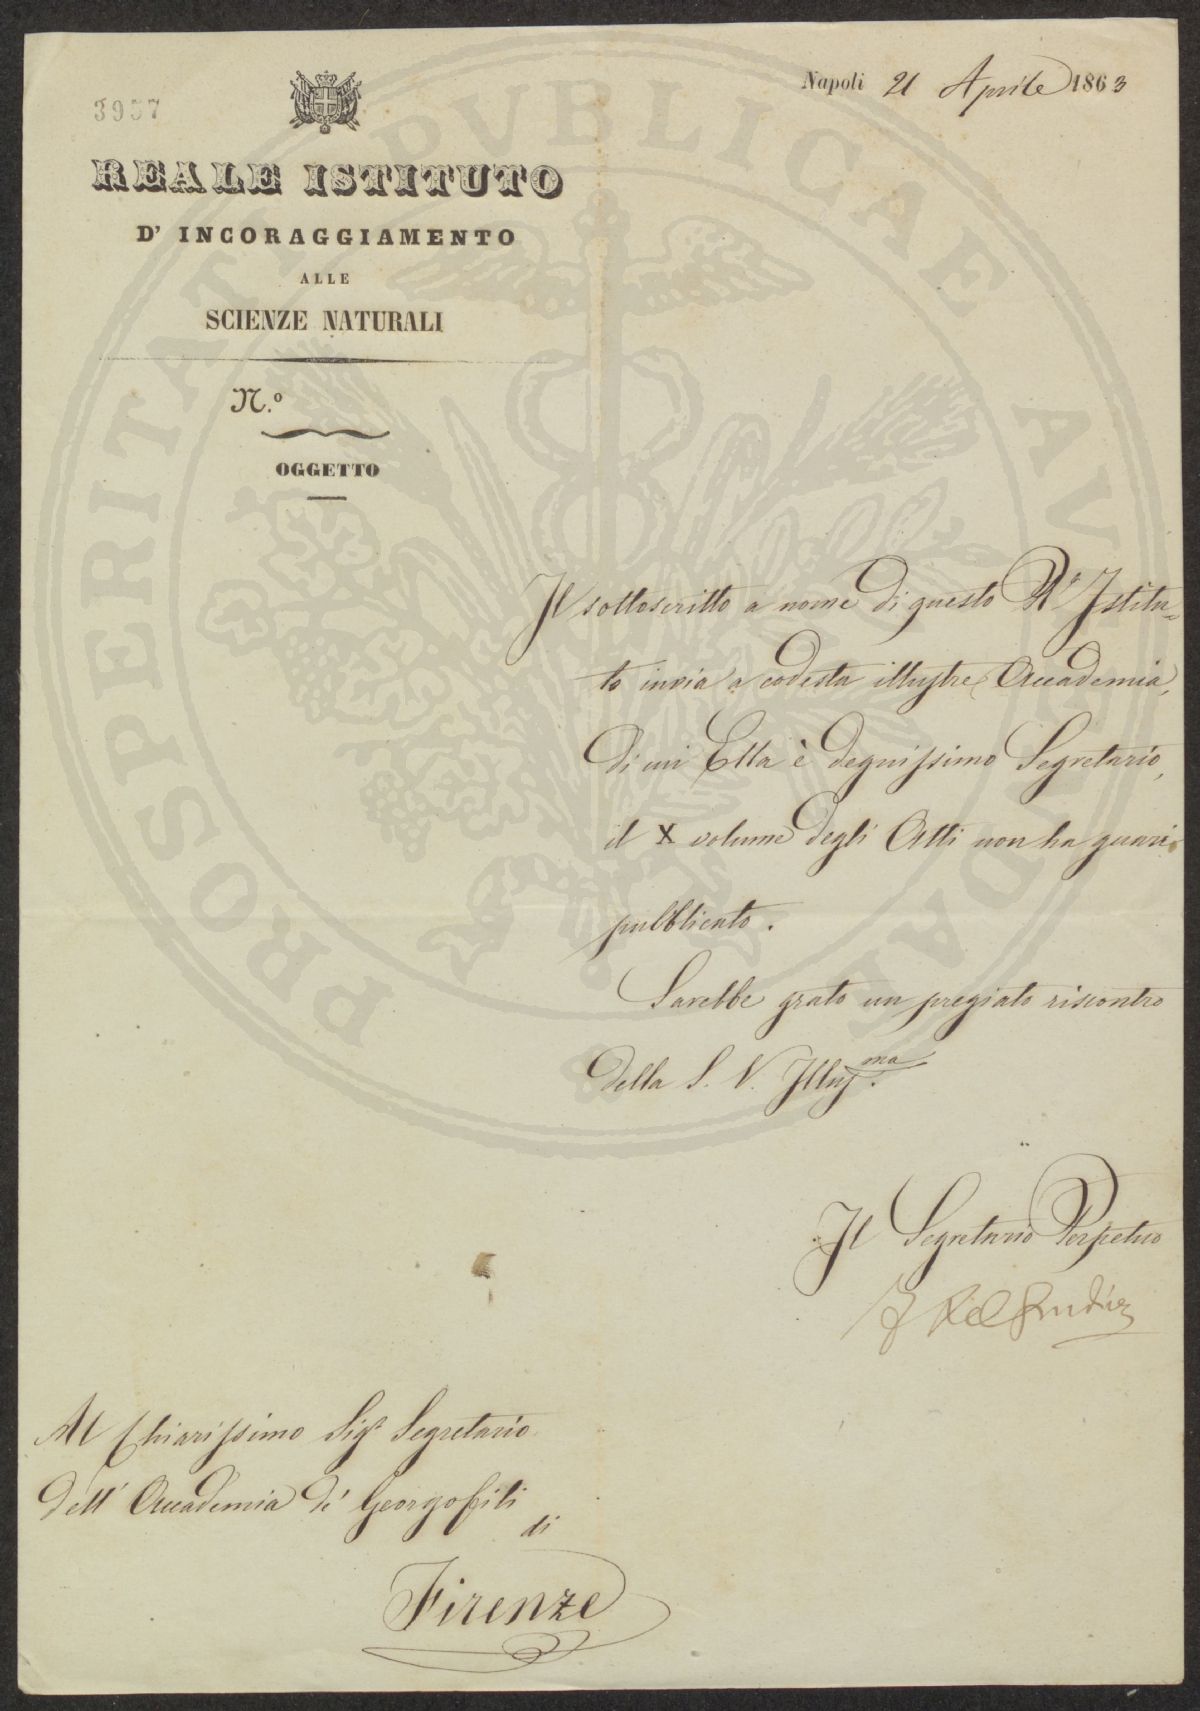 Napoli 21 Aprile 1863
3957
REALE ISTITUTO
D' INCORAGGIAMENTO
ALLE
SCIENZE NATURALI
N.º
OGGETTO
Il sottoscritto a nome di questo R.º Istitu-
to invia a codesta illustre Accademia,
di cui Ella è degnissimo Segretario,
il X volume degli Atti non ha guari
pubblicato.
Sarebbe grato un pregiato riscontro
della S. V. Illus.ma
Il Segretario Perpetuo
Al Chiarissimo Sigr Segretario
dell' Accademia de' Georgofili
di
Firenze
PROSPERITATI PVBLICAE AVGENDAE